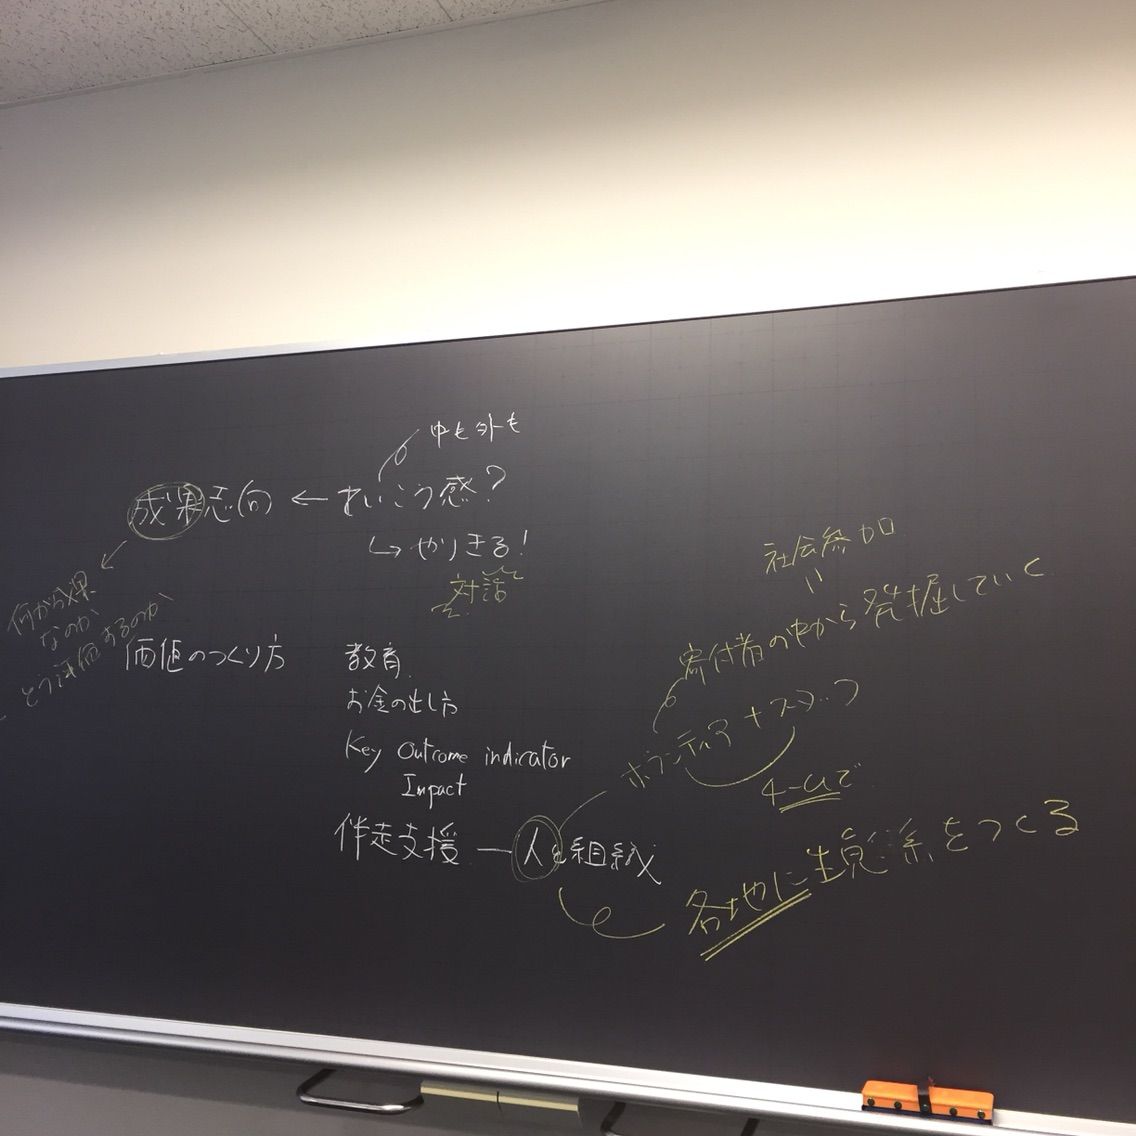 中も外も
成果志向 ← れいこう感?
↳ やりきる!
対話して
何が成果
なのか
どう評価するのか
価値のつくり方
教育
お金の出し方
Key Outcome indicator
Impact
伴走支援 ー 人と組織
社会参加
〃
寄付者の中から発掘していく
ボランティア + スタッフ
チームで
各地に生態系をつくる